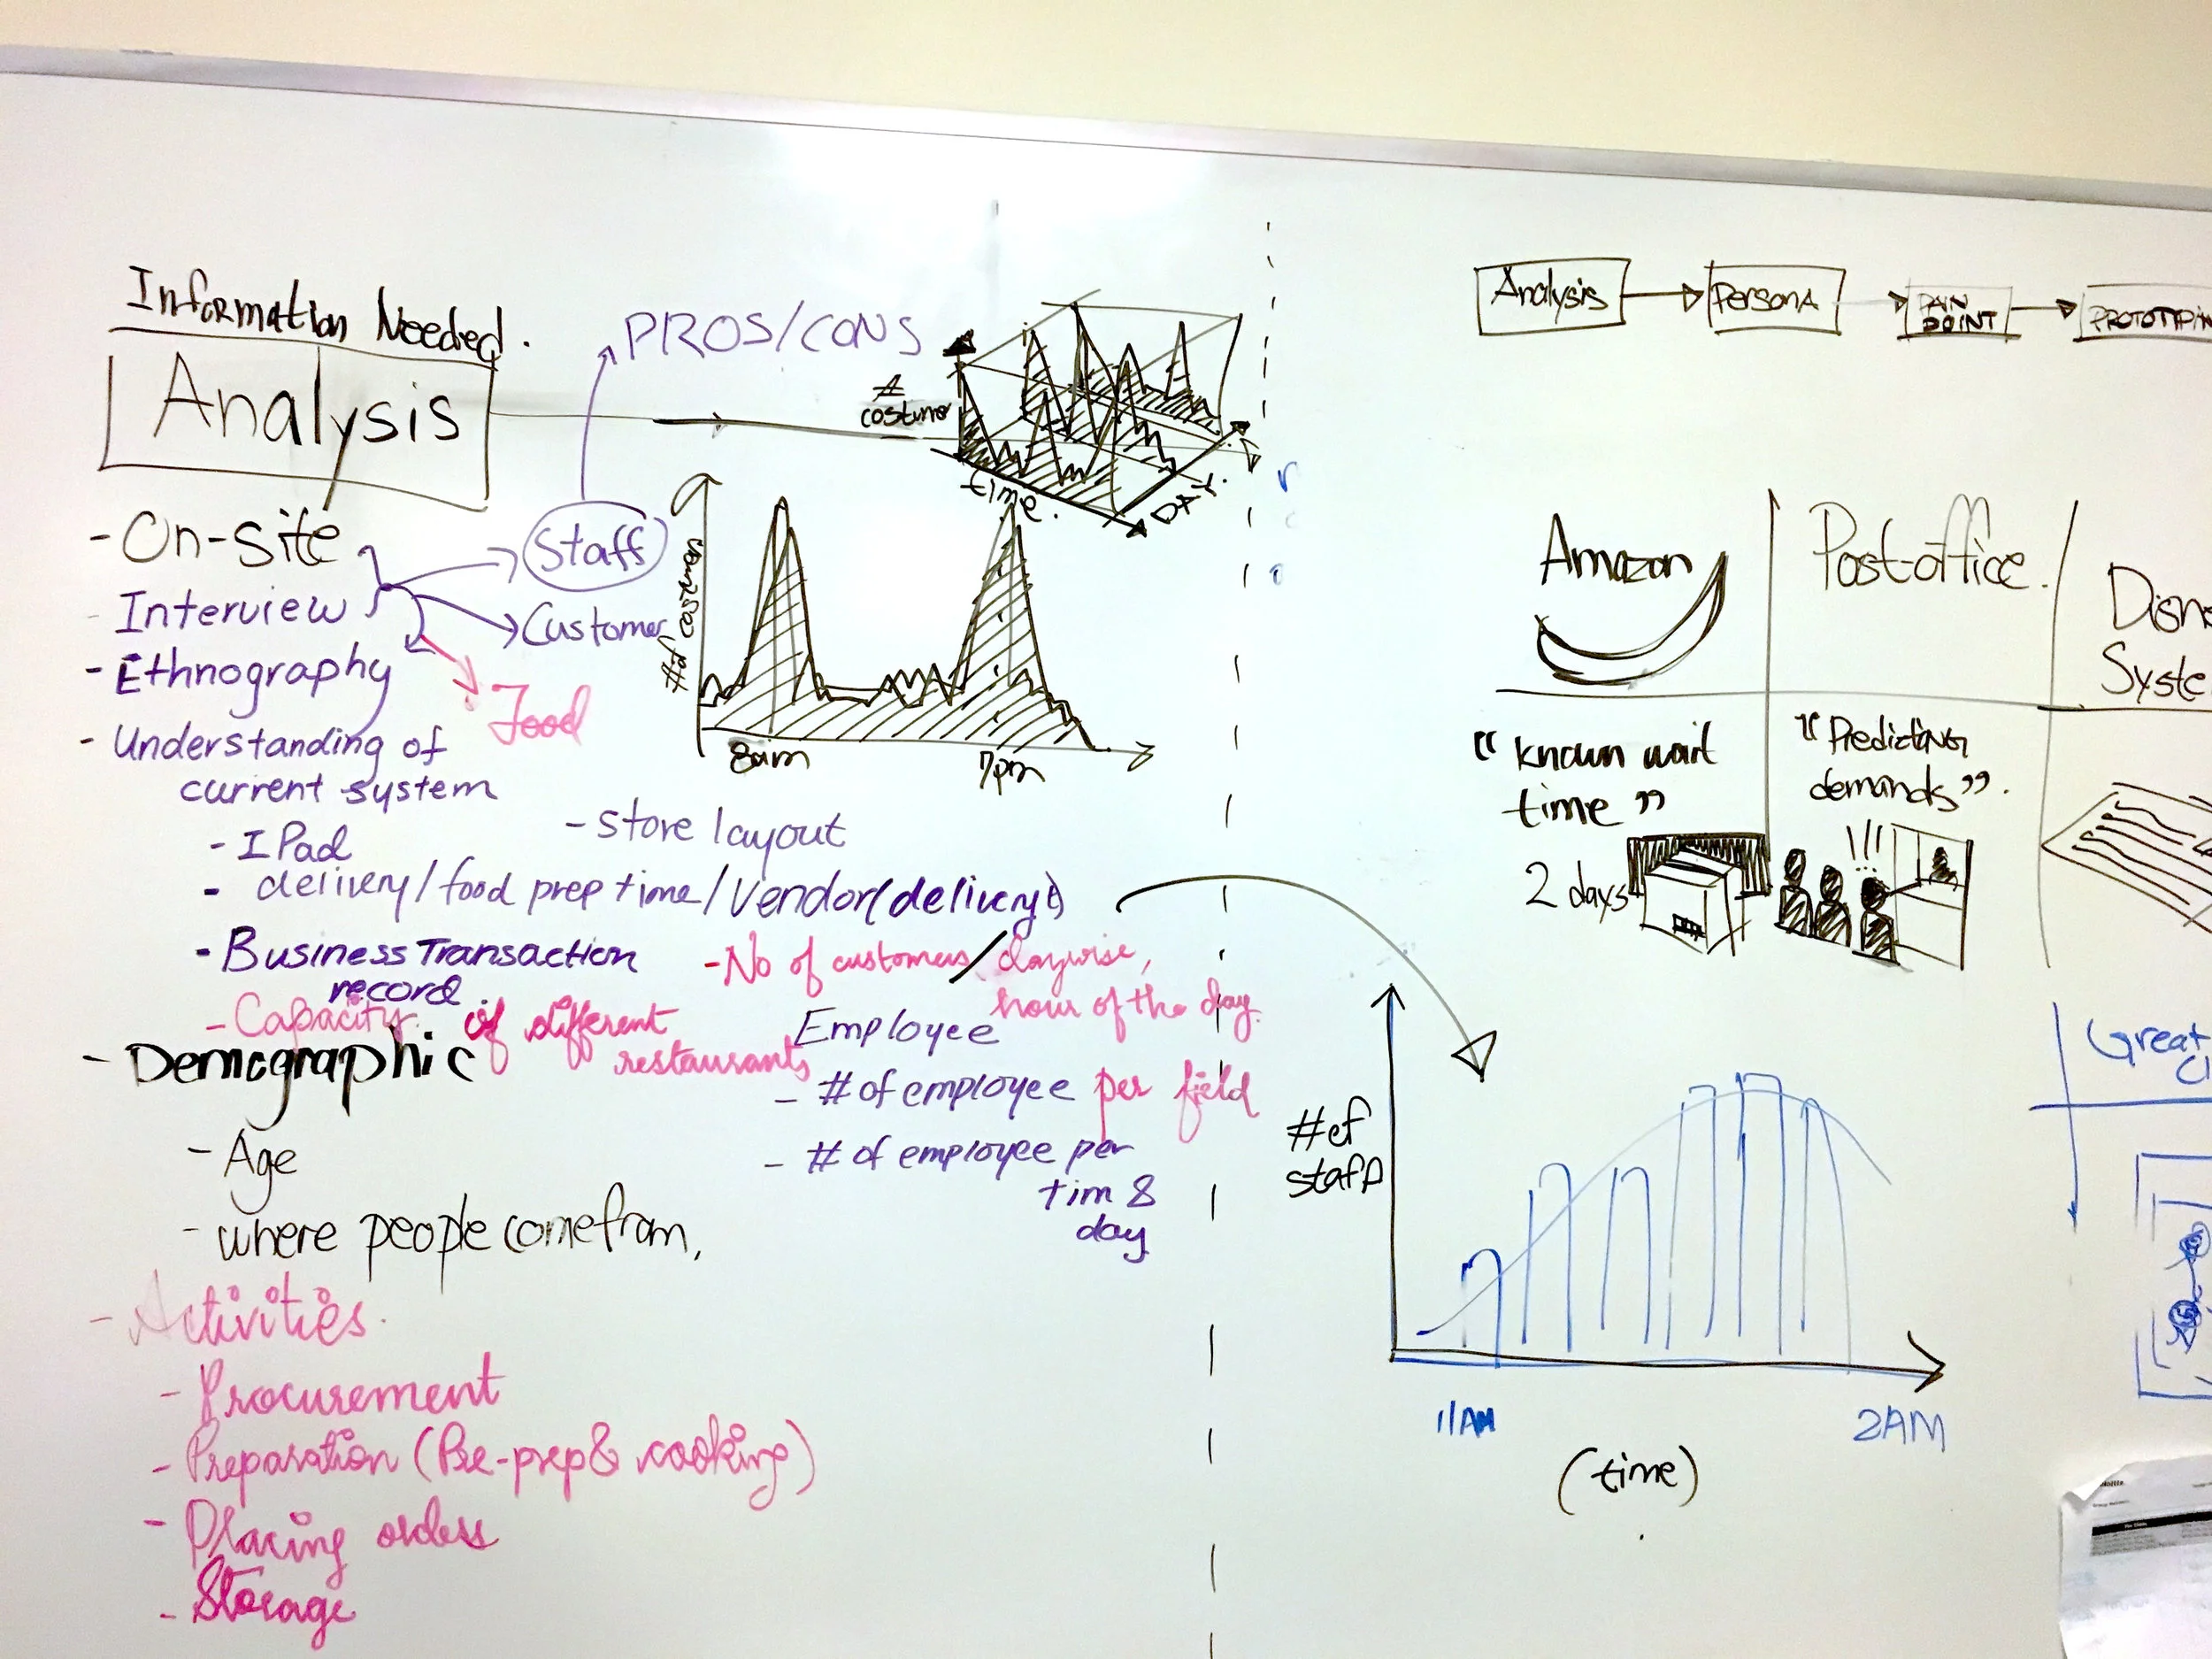 Information Needed.
Analysis
PROS/CONS
- On-site
- Interview
- Ethnography
- Understanding of
current system
- IPad
- delivery/food prep time/Vendor(delivery t)
- Business Transaction
record.
- Capacity of different
restaurants
Staff
Customer
Food
- store layout
- No of customers/daywise,
hour of the day.
Employee
- # of employee per field
- # of employee per
tim &
day
- Demographic
- Age
- where people come from,
- Activities.
- Procurement
- Preparation (Pre-prep & cooking)
- Placing orders
- Storage
# costumer
time.
DAY.
# of costumers
8am
7pm
Analysis
PERSONA
PAIN
POINT
PROTOTYPIN
Amazon
Post-office.
Disn
Syste
"known wait
time"
2 days
"Predicting
demands".
!!!
Great
# of
staff
11AM
2AM
(time)